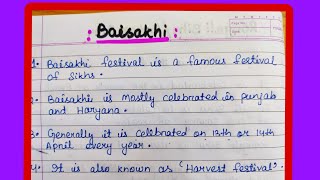 : Baisakhi :
1. Baisakhi festival is a famous festival
of Sikhs.
2. Baisakhi is mostly celebrated in punjab
and Haryana.
3. Generally it is celebrated on 13th or 14th
April every year.
4. It is also known as 'Harvest festival'.